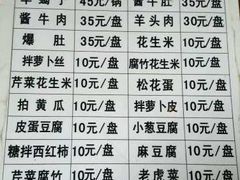 羊蝎子 45元/锅 酱牛肚 35元/盘
酱牛肉 35元/盘 羊头肉 30元/盘
爆肚 35元/盘 花生米 10元/盘
拌萝卜丝 10元/盘 腐竹花生米 10元/盘
芹菜花生米 10元/盘 松花蛋 10元/盘
拍黄瓜 10元/盘 拌萝卜皮 10元/盘
皮蛋豆腐 10元/盘 小葱豆腐 10元/盘
糖拌西红柿 10元/盘 麻豆腐 10元/盘
芹菜腐竹 10元/盘 老虎菜 10元/盘